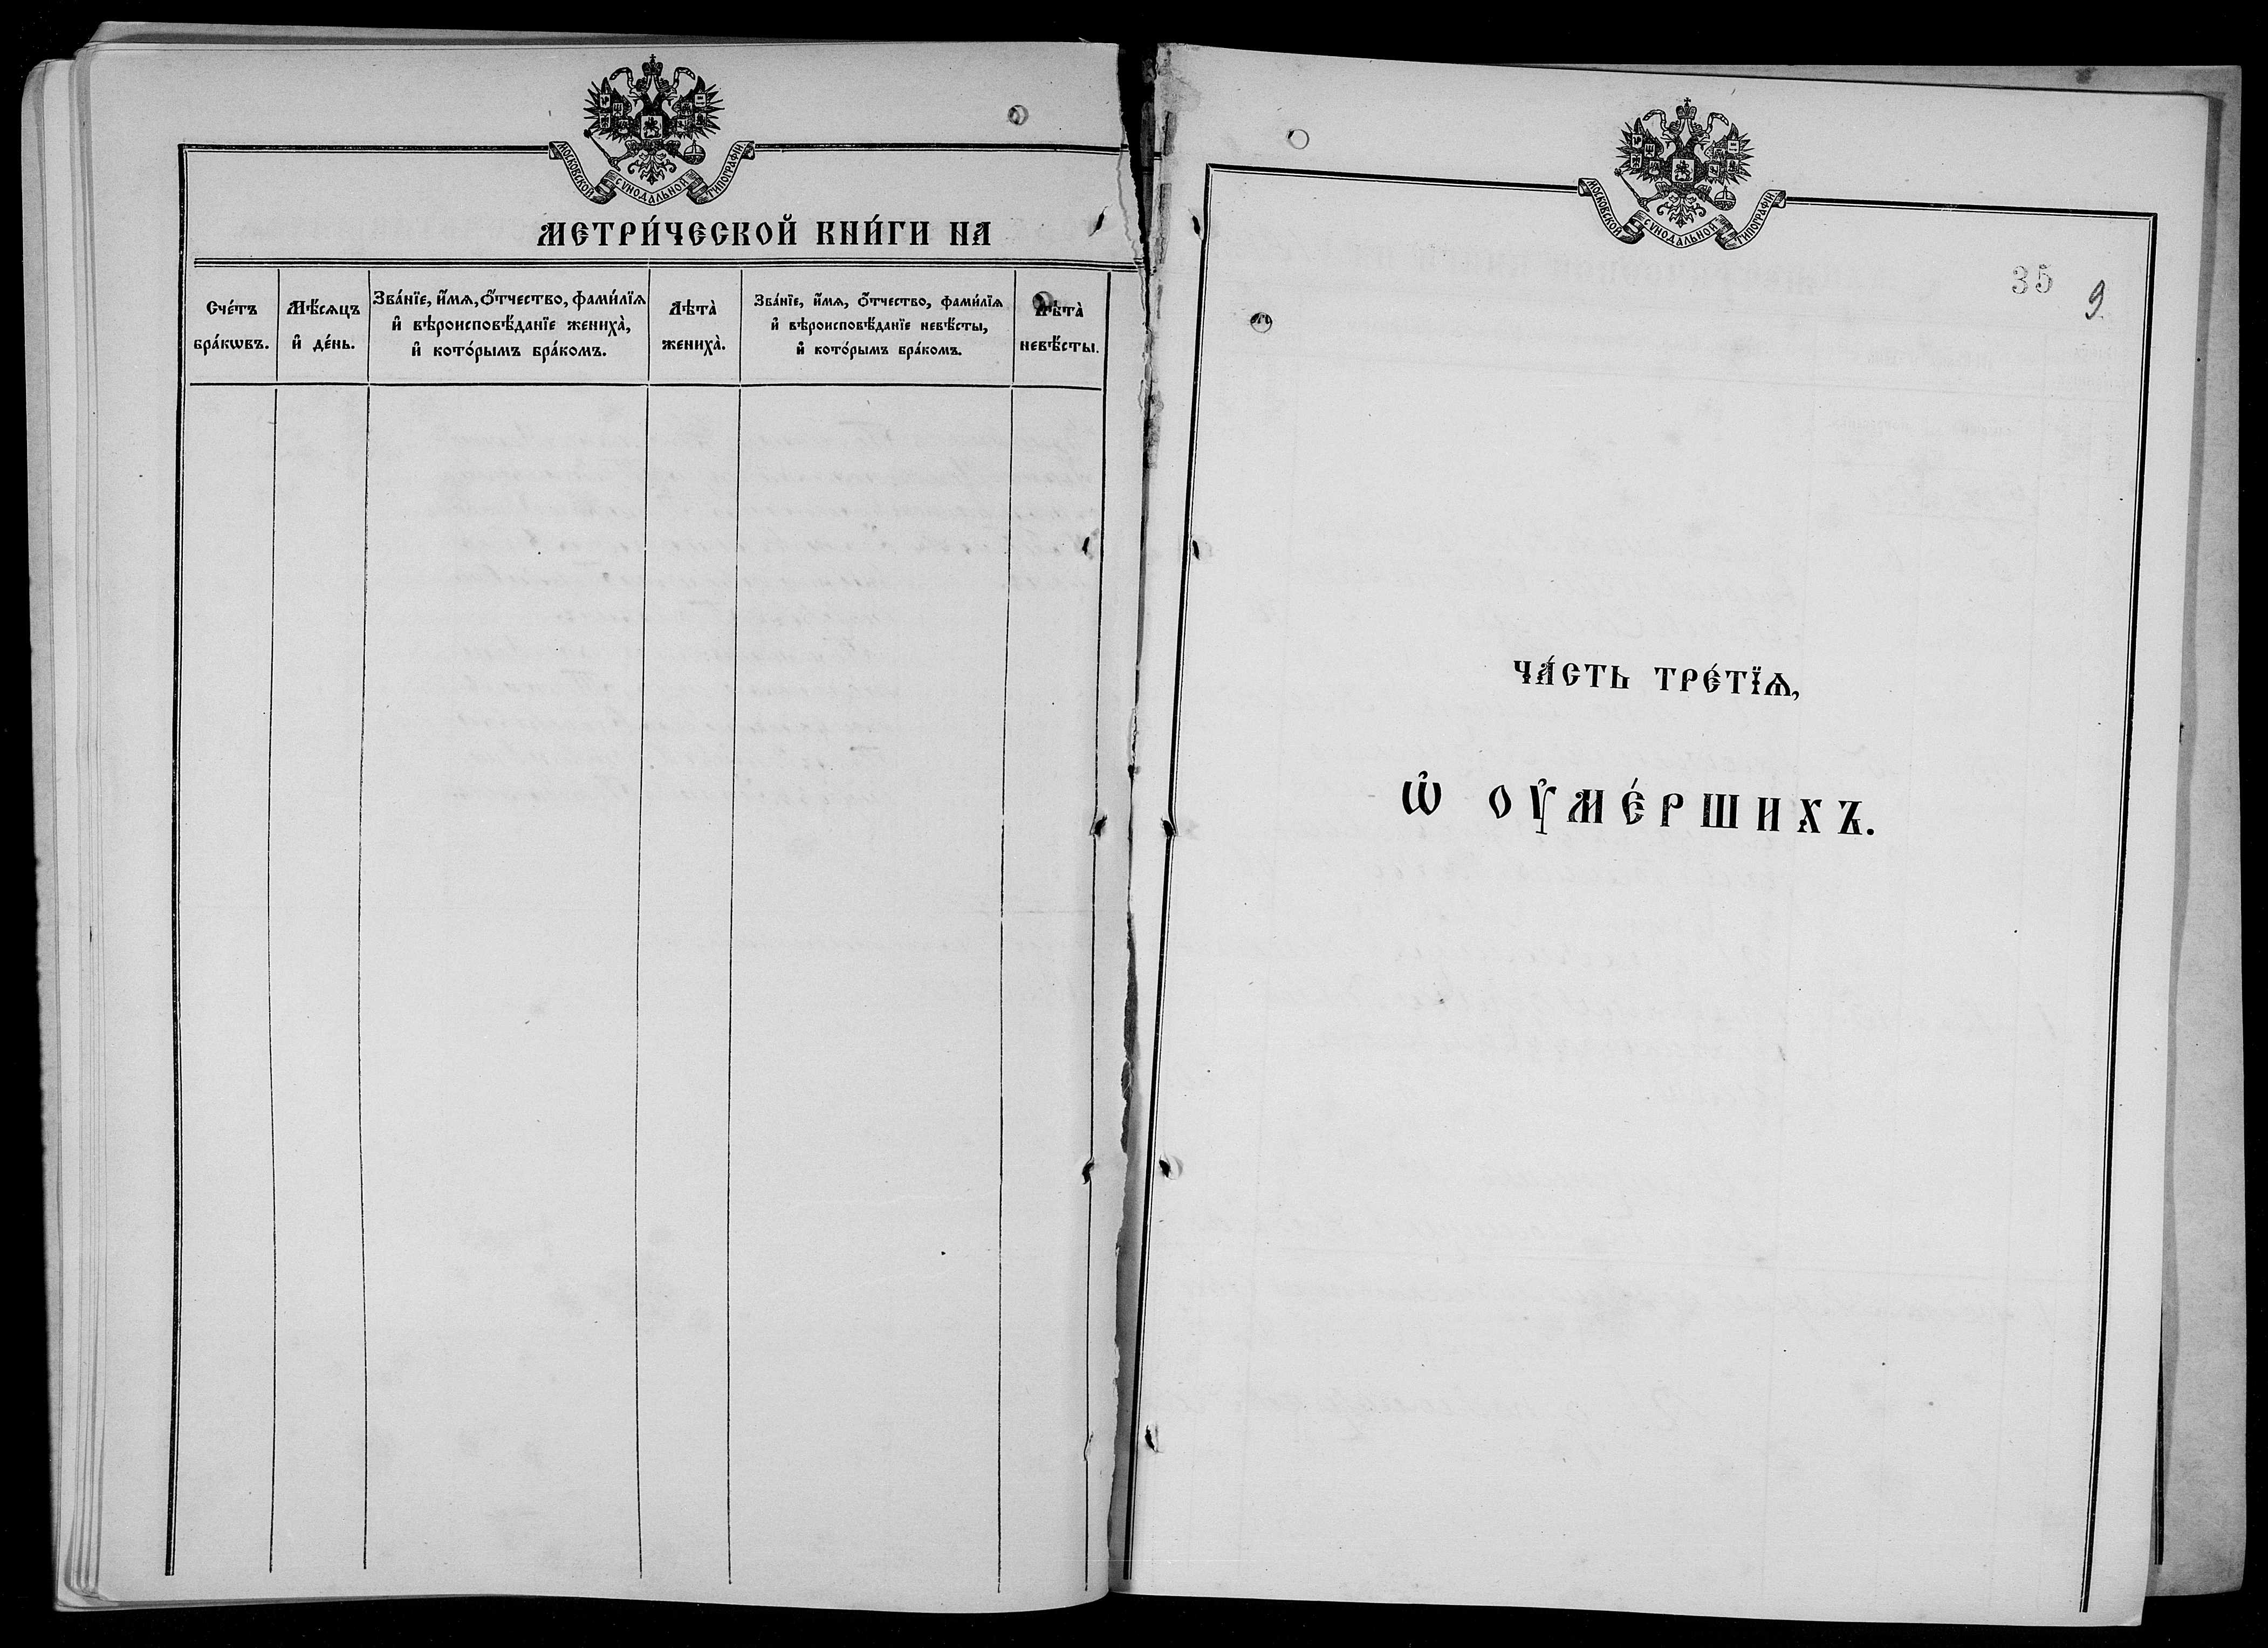 МОСКОВСКОЙ СѴНОДАЛЬНОЙ ТИПОГРАФІИ
МЕТРИ́ЧЕСКОЙ КНИ́ГИ НА
Сче́тъ
бра́кѡвъ.
Мѣ́сѧцъ
и҆ де́нь.
Зва́нїе, и҆́мѧ, ѻ҆́тчество, фами́лїѧ
и҆ вѣроисповѣ́данїе жениха̀,
и҆ кото́рымъ бра́комъ.
Лѣта̀
жениха̀.
Зва́нїе, и҆́мѧ, ѻ҆́тчество, фами́лїѧ
и҆ вѣроисповѣ́данїе невѣ́сты,
и҆ кото́рымъ бра́комъ.
Лѣта̀
невѣ́сты.
МОСКОВСКОЙ СѴНОДАЛЬНОЙ ТИПОГРАФІИ
35
9.
ЧА́СТЬ ТРЕ́ТЇѦ,
Ѡ҆ ОУ҆МЕ́РШИХЪ.